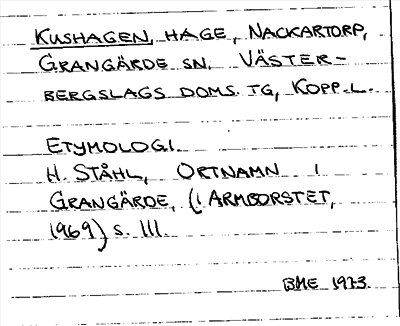 KUSHAGEN, HAGE, NACKARTORP,
GRANGÄRDE SN. VÄSTER-
BERGSLAGS DOMS. TG, KOPP. L.
ETYMOLOGI.
H. STÅHL, ORTNAMN I
GRANGÄRDE, (I ARMBORSTET,
1969) S. 111.
BME 1973.